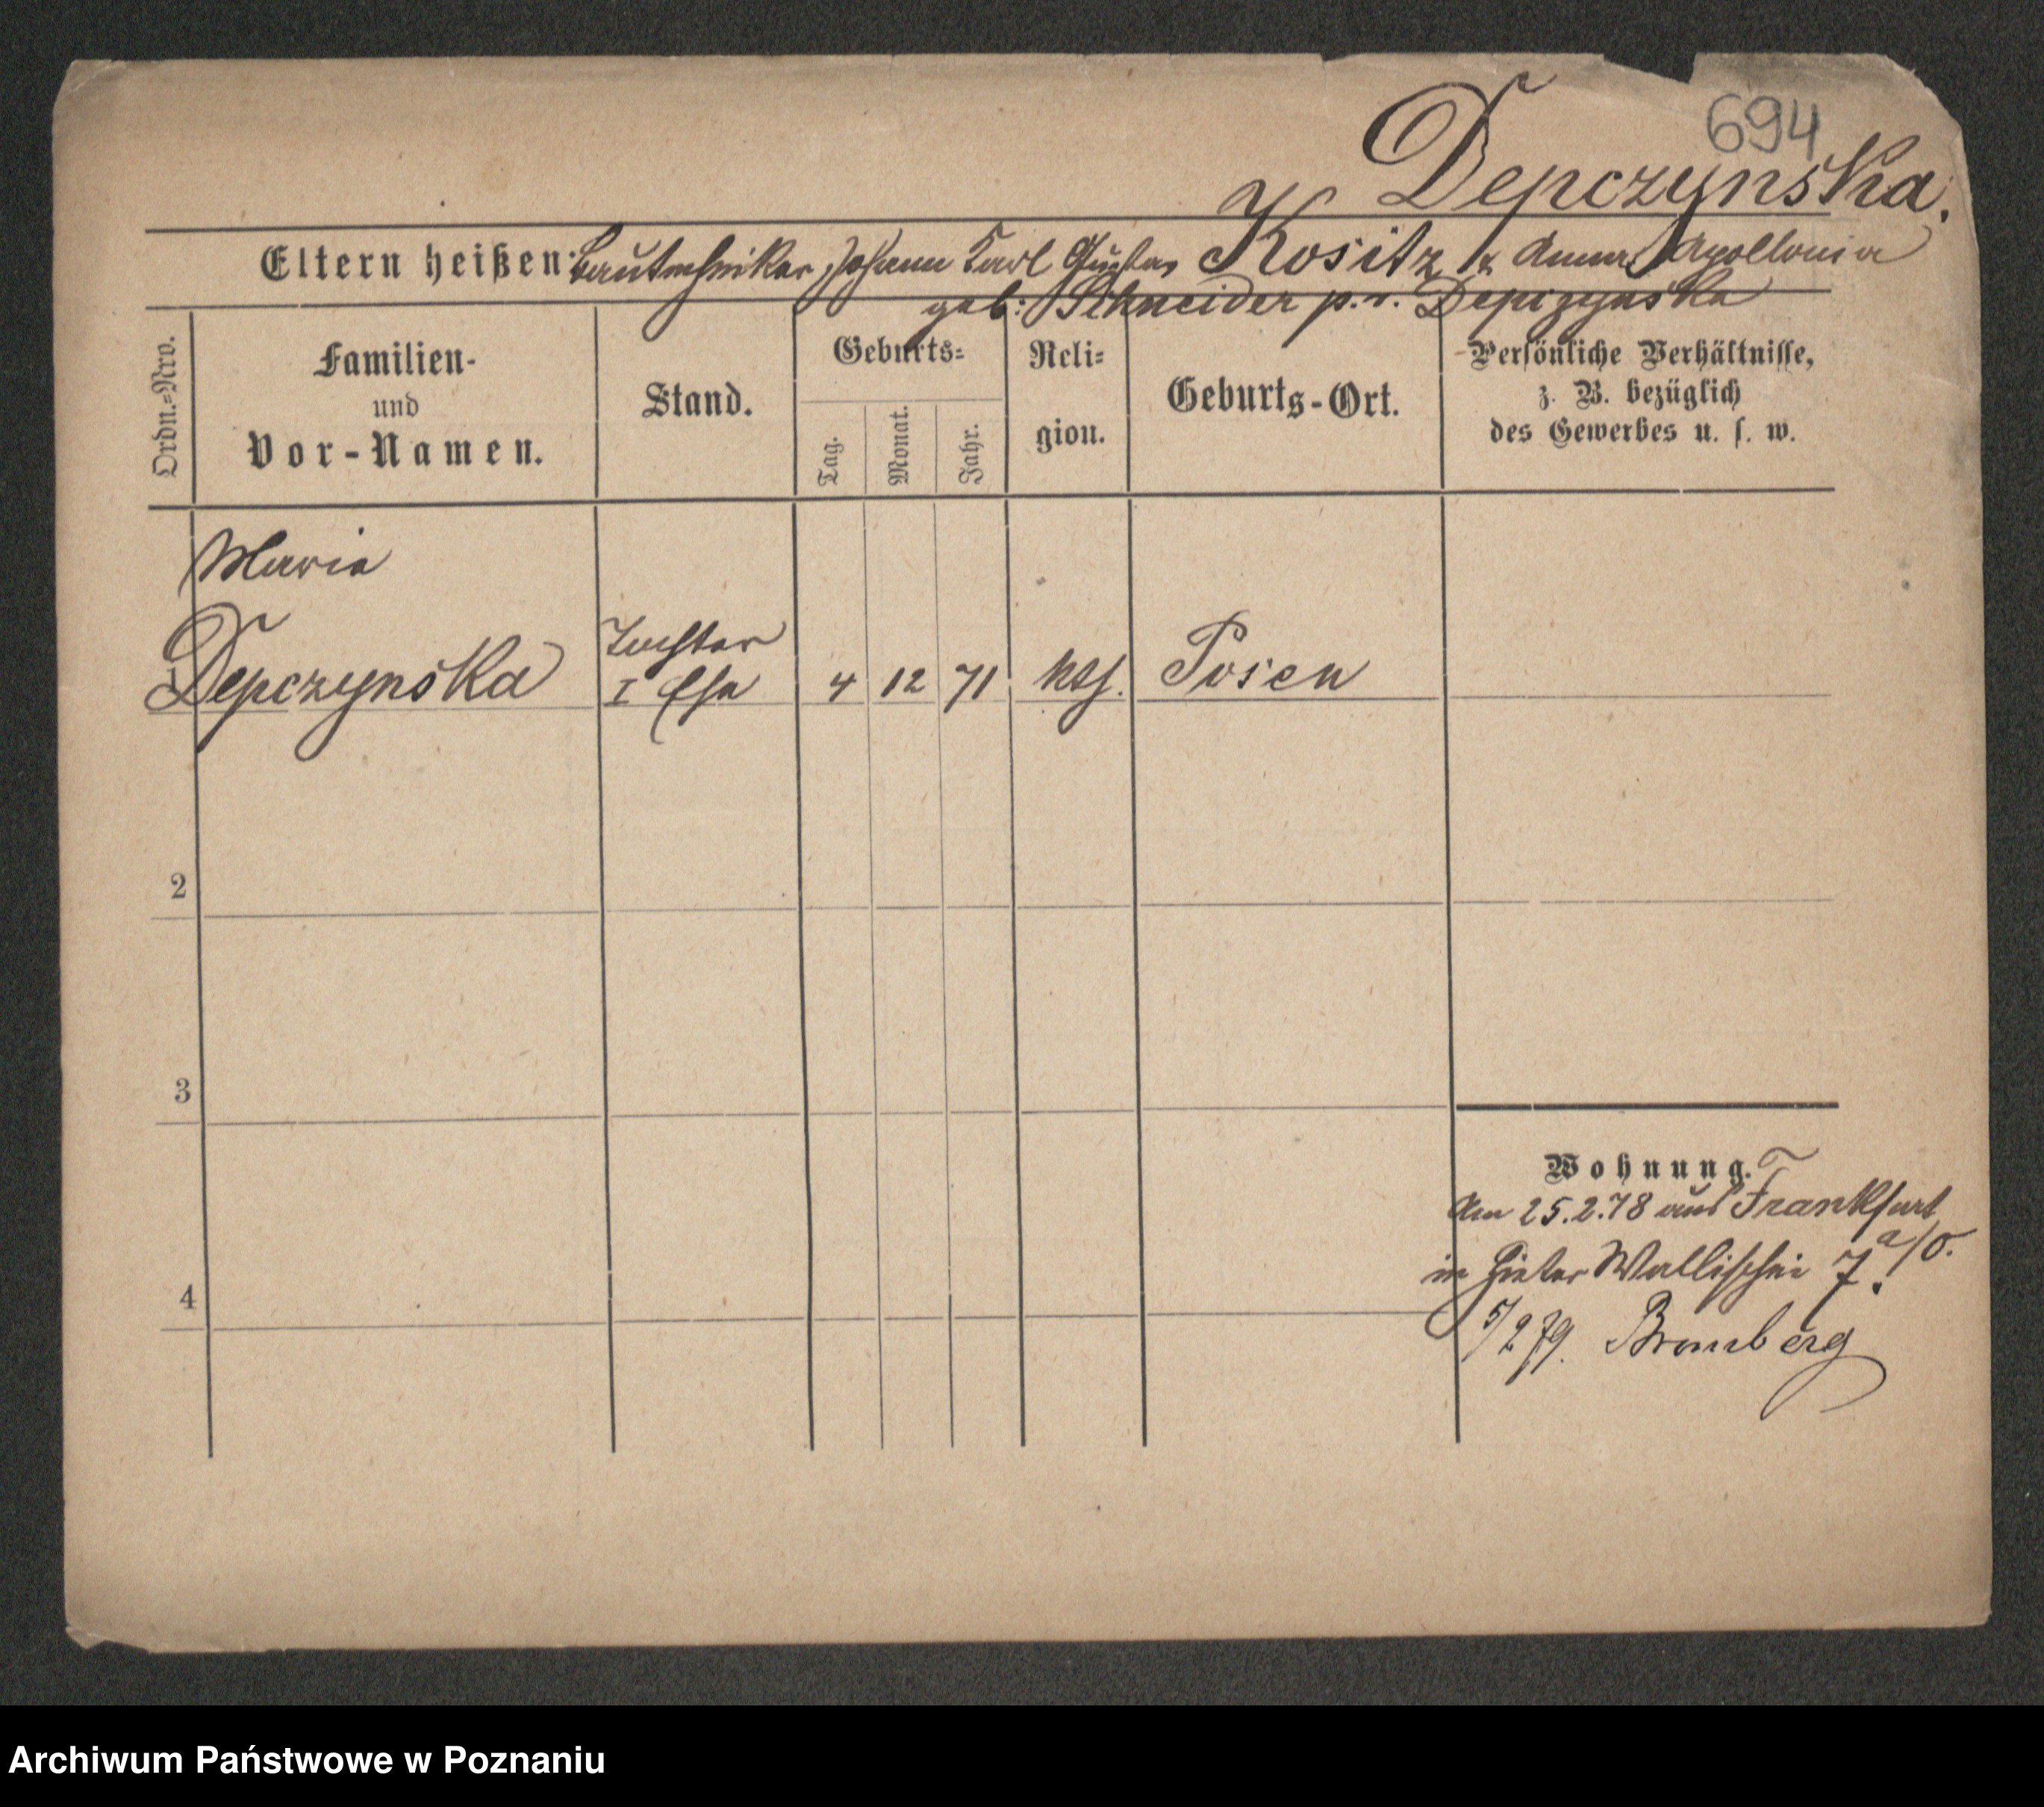 694
Depczynska.
Eltern heißen: Bautechniker Johann Carl Gustav Kositz & Anna Apollonia
geb: Schneider p. v. Depczynska
Ordn.=Nro.
Familien-
und
Vor-Namen.
Stand.
Geburts=
Tag.
Monat.
Jahr.
Reli=
gion.
Geburts-Ort.
Persönliche Verhältnisse,
z. B. bezüglich
des Gewerbes u. s. w.
Maria
Depczynska
Tochter
I Ehe
4 12 71 kth. Posen
2
3
4
Wohnung.
Am 25.2.78 aus Frankfurt
a/O.
in Hinter Wallischei 7.
5/2 79. Bromberg
Archiwum Państwowe w Poznaniu